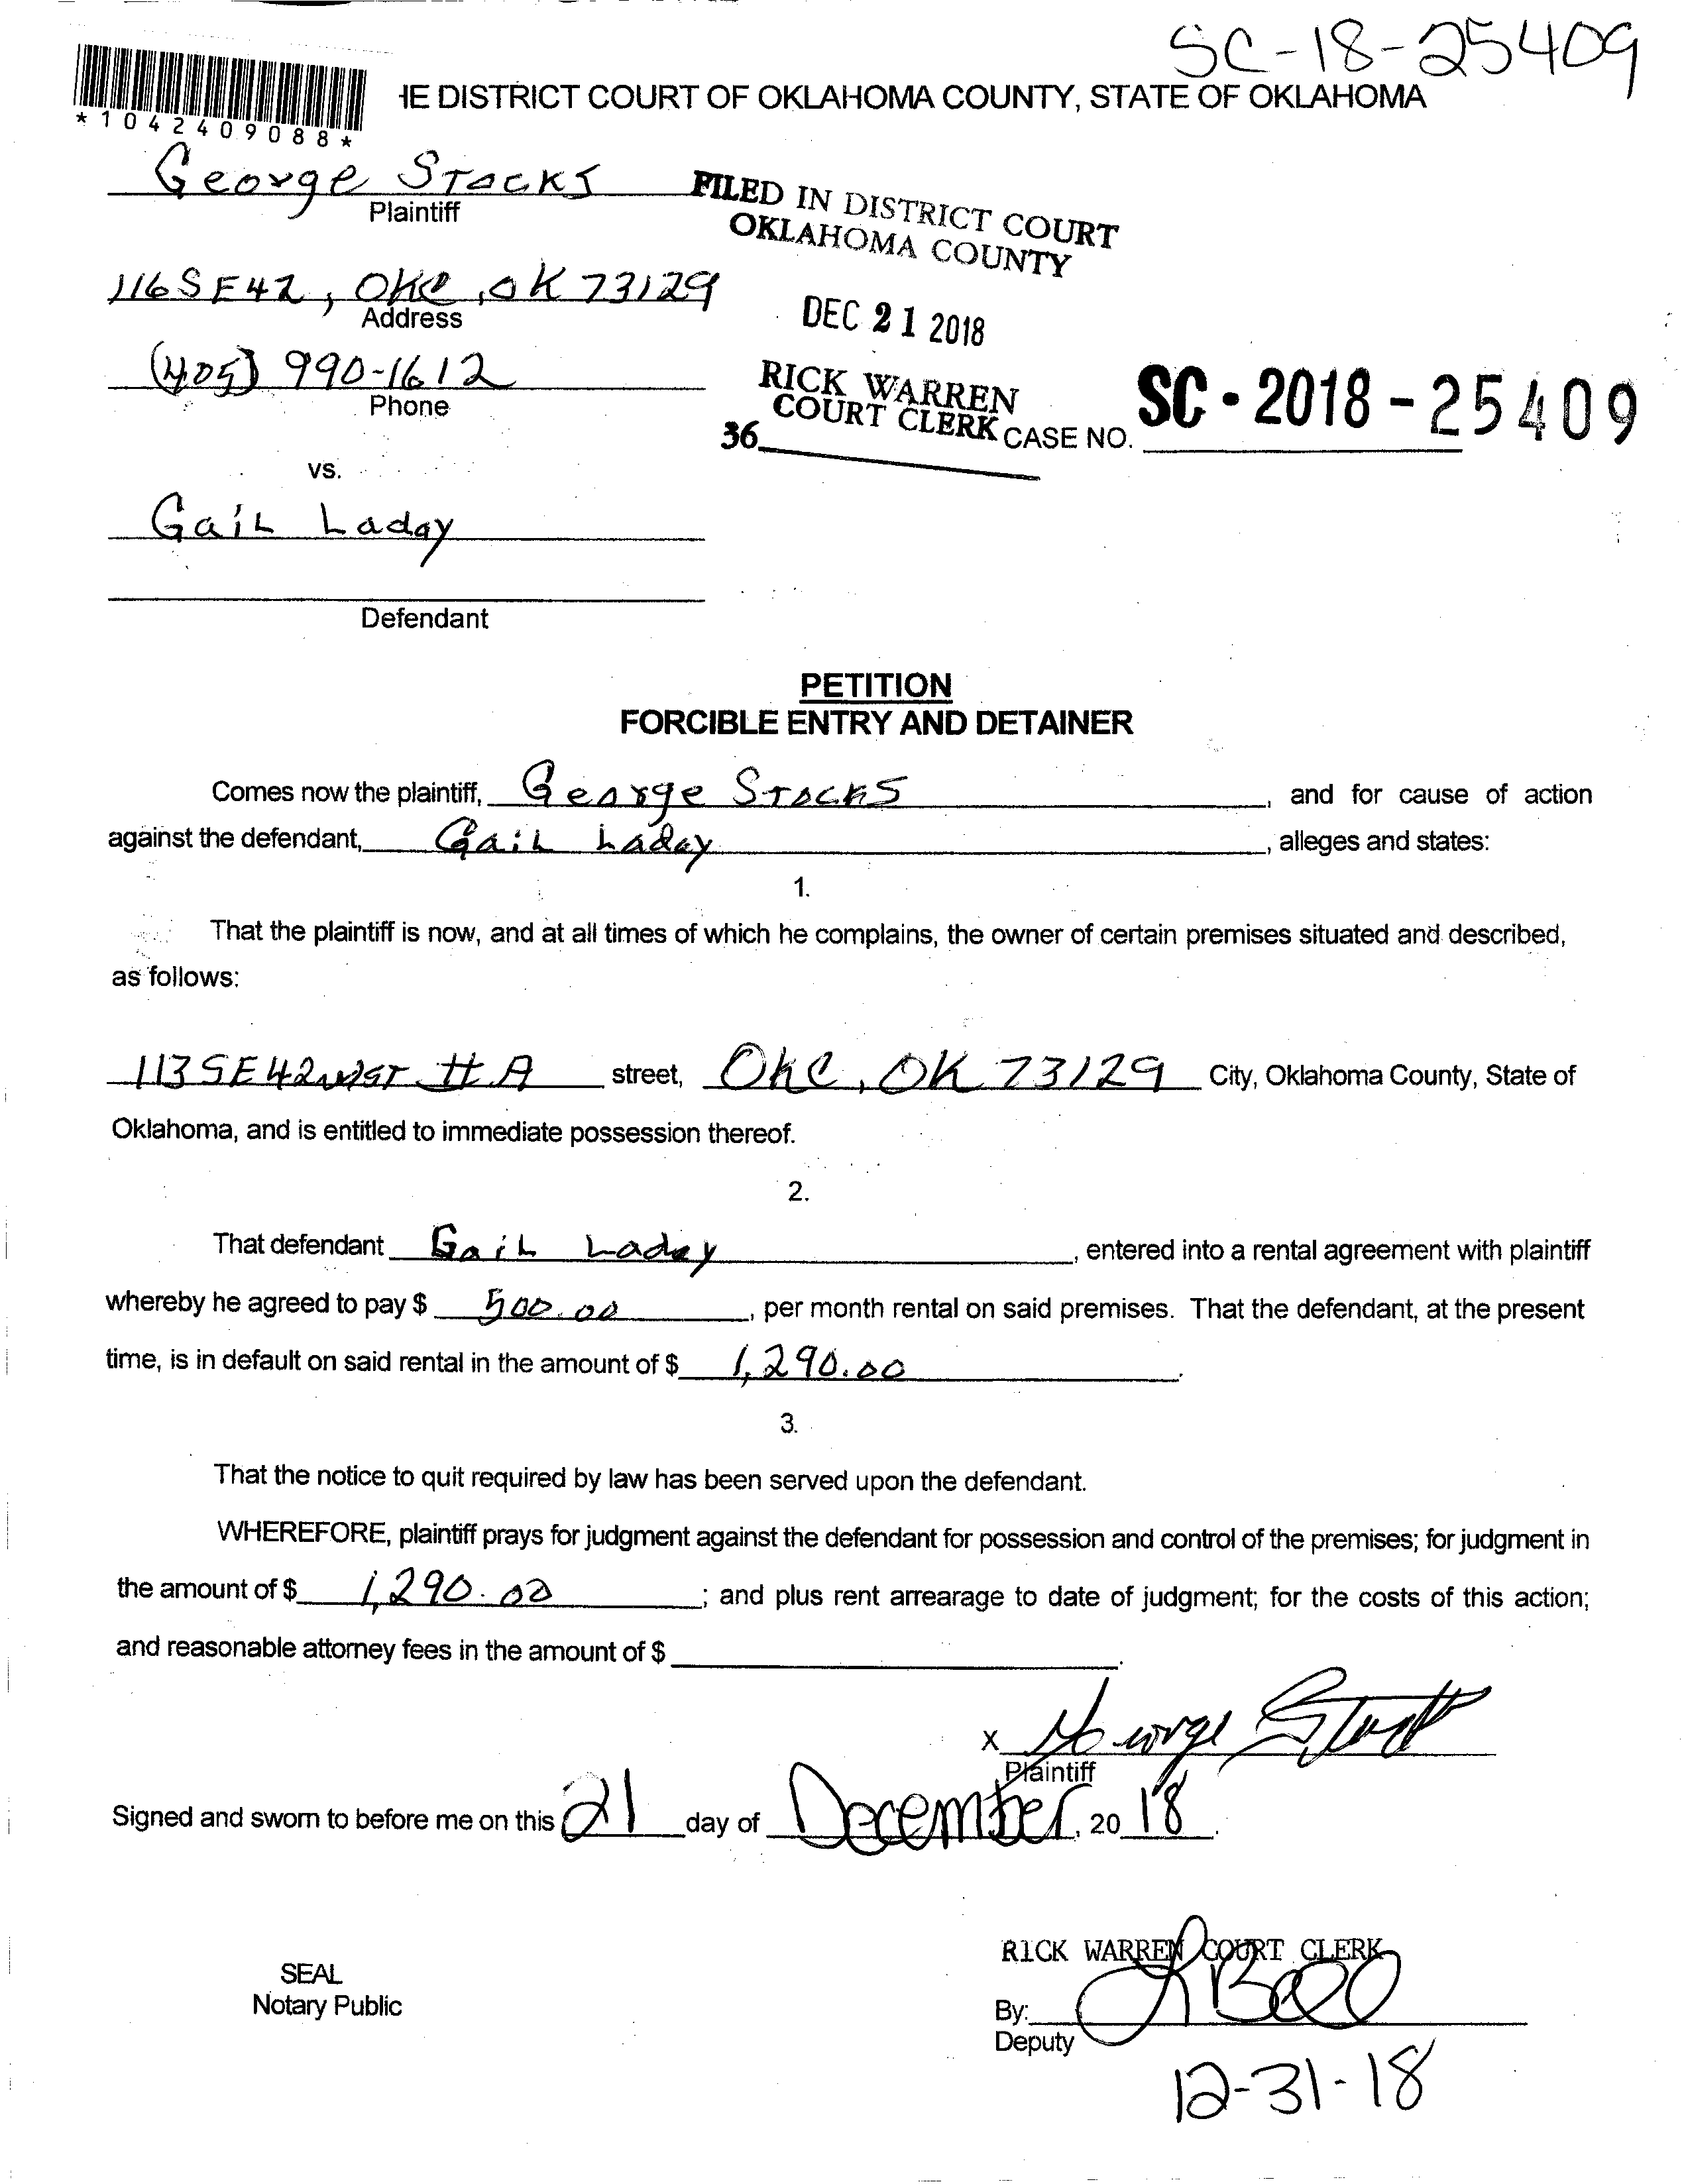 SC-18-25409
*1042409088*
HE DISTRICT COURT OF OKLAHOMA COUNTY, STATE OF OKLAHOMA
George Stocks
Plaintiff
FILED IN DISTRICT COURT
OKLAHOMA COUNTY
116 SE 42, OKC, OK 73129
Address
DEC 21 2018
(405) 990-1612
Phone
RICK WARREN
COURT CLERK
36
CASE NO. SC-2018-25409
vs.
Gail Laday
Defendant
PETITION
FORCIBLE ENTRY AND DETAINER
Comes now the plaintiff, George Stocks, and for cause of action
against the defendant, Gail Laday, alleges and states:
1.
That the plaintiff is now, and at all times of which he complains, the owner of certain premises situated and described,
as follows:
113 SE 42nd ST # A street, OKC, OK 73129 City, Oklahoma County, State of
Oklahoma, and is entitled to immediate possession thereof.
2.
That defendant Gail Laday, entered into a rental agreement with plaintiff
whereby he agreed to pay $ 500.00, per month rental on said premises. That the defendant, at the present
time, is in default on said rental in the amount of $ 1,290.00.
3.
That the notice to quit required by law has been served upon the defendant.
WHEREFORE, plaintiff prays for judgment against the defendant for possession and control of the premises; for judgment in
the amount of $ 1,290.00; and plus rent arrearage to date of judgment; for the costs of this action;
and reasonable attorney fees in the amount of $ .
X George Stocks
Plaintiff
Signed and sworn to before me on this 21 day of December, 2018.
RICK WARREN COURT CLERK
SEAL
Notary Public
By:
Deputy
12-31-18